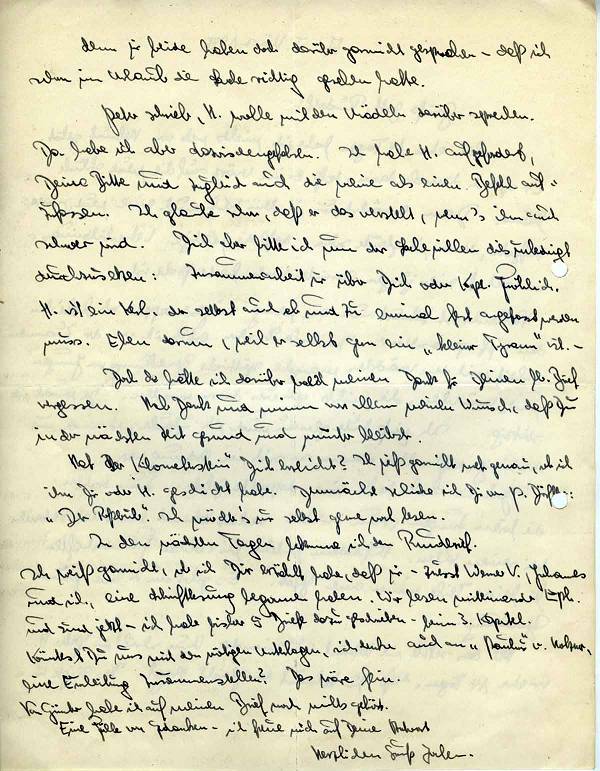 denn wir beide haben doch darüber garnicht gesprochen - daß ich
schon im Urlaub die Sache richtig gesehen hatte.
Peter schrieb, H. wolle mit den Mädeln darüber sprechen.
Da habe ich aber dazwischengefahren. Ich habe H. aufgefordert,
Deine Bitte und zugleich auch die meine als einen Befehl auf-
zufassen. Ich glaube schon, daß er das versteht, wenn's ihm auch
schwer wird. Dich aber bitte ich um der Sache willen dies unbedingt
durchzusetzen: Zusammenarbeit nur über Dich oder Kpl. Fröhlich.
H. ist ein Kerl, der selbst auch ab und zu einmal fest angefasst werden
muss. Eben darum, weil er selbst gern ein „kleiner Tyrann" ist. -
Jetzt hätte ich darüber wohl meinen Dank für Deinen lb. Brief
vergessen. Hab Dank und nimm vor allem meinen Wunsch, daß Du
in der nächsten Zeit gesund und munter bleibst.
Hat Dich erreicht? Ich weiß garnicht mehr genau, ob ich
ihn Dir oder H. geschickt habe. Demnächst schicke ich Dir von P.
„Der Ich möchte's nur selbst gerne noch lesen.
In den nächsten Tagen bekomme ich den Rundbrief.
Ich weiß garnicht, ob ich Dir erzählt habe, daß wir - zuerst Werner V., Johannes
und ich, eine Schriftlesung begonnen haben. Wir lesen miteinander Eph.
und sind jetzt - ich habe bisher 5 Briefe dazu geschrieben - beim 3. Kapitel.
Könntest Du uns mit den nötigen Unterlagen, ich denke auch an „Paulus" v. Holzner,
eine Einleitung zusammenstellen? Das wäre fein.
Von Günter habe ich auf meinen Brief noch nichts gehört.
Eine Fülle von Gedanken - ich freue mich auf Deine Antwort
Herzlichen Gruß